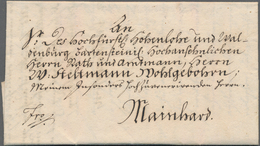 An
Sr Des Hochfürstl Hohenlohe und Wal-
denburg Bartensteinis. Hochansehnlichen
Herrn Rath und Amtmann, Herrn
W. Hellmann Wohlgebohrn,
Meinem Insonders Herrn.
Fro.
Mainhard.